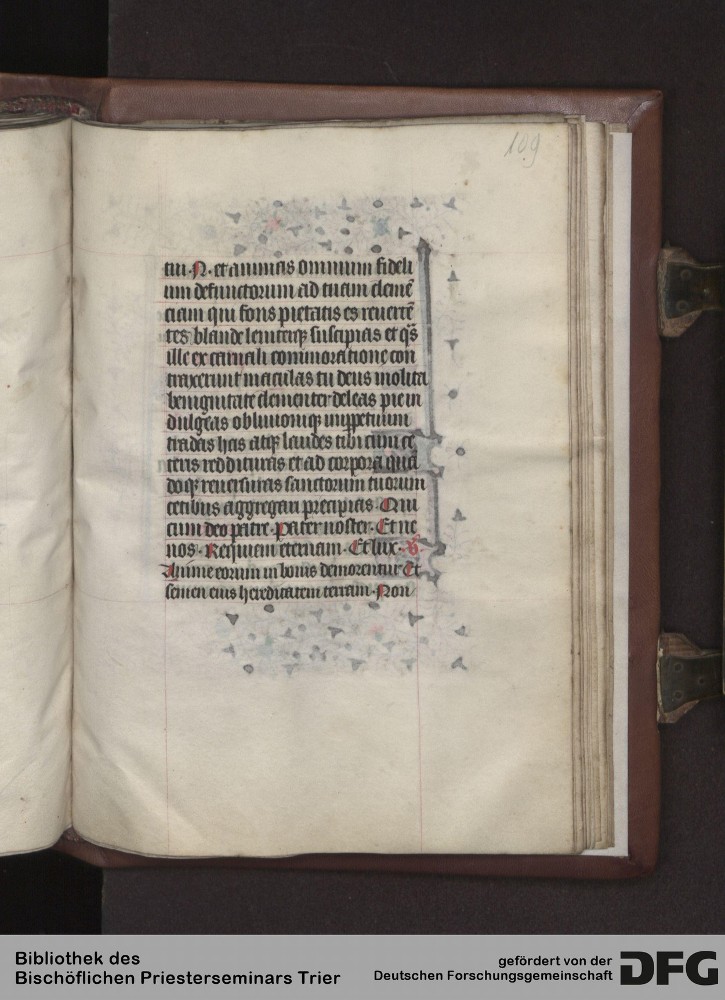 109
tui · N · et animas omnium fideli
um defunctorum ad tuam clemē
ciam qui fons pietatis es reuertē
tes blande leniterqʒ suscipias et qͥs
ille ex carnali commoratione con
traxerunt maculas tu deus molita
benignitate clementer deleas pie in
dulgeas obliuioniqʒ inꝑpetuum
tradas has atqʒ laudes tibi cum ce
teris reddituras et ad corpora quā
doqʒ reuersuras sanctorum tuorum
cetibus aggregari precipias · Qui
cum deo patre · Pater noster · Et ne
nos · Requiem eternam · Et lux · ꝟ
Anime eorum in bonis demorentur Et
semen eius hereditatem terram · Non
Bibliothek des
Bischöflichen Priesterseminars Trier
gefördert von der
Deutschen Forschungsgemeinschaft
DFG